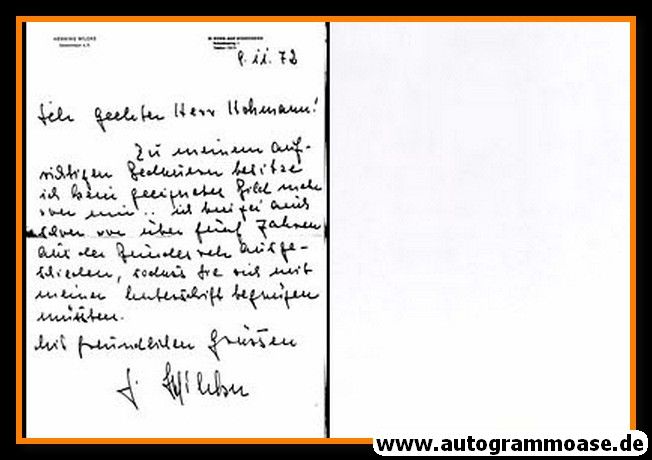 HENNING WILCKE
Generalmajor a.D.
9. ii. 72
Sehr geehrter Herr Hohmann!
Zu meinem auf-
richtigen Bedauern besitze
ich kein geeignetes Bild mehr
von mir..
schon vor über fünf Jahren
aus der Bundeswehr ausge-
schieden, sodass Sie sich mit
meiner Unterschrift begnügen
müssten.
Mit freundlichen Grüssen
H. Wilcke
www.autogrammoase.de